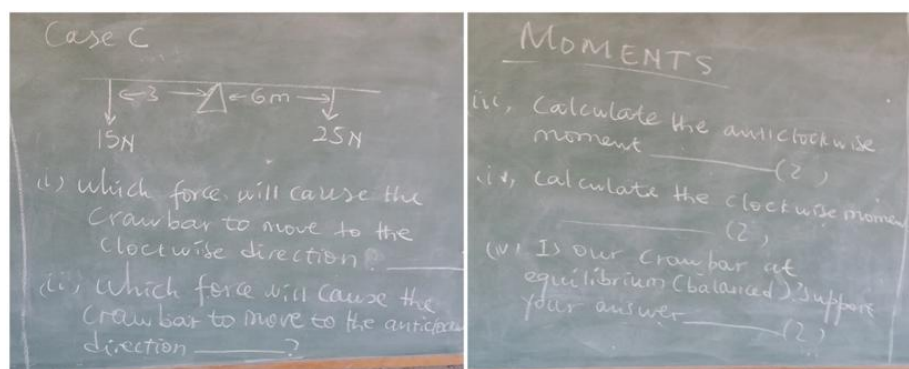 Case C
←3→ ←6m→
15N 25N
(i) Which force will cause the
Crawbar to move to the
Clockwise direction?
(ii) Which force will cause the
Crawbar to move to the
direction ?
MOMENTS
iii, Calculate the anticlockwise
moment (2)
iv, Calculate the clockwise moment
(2)
(v) Is our Crawbar at
equilibrium (balanced)? Support
your answer (2)